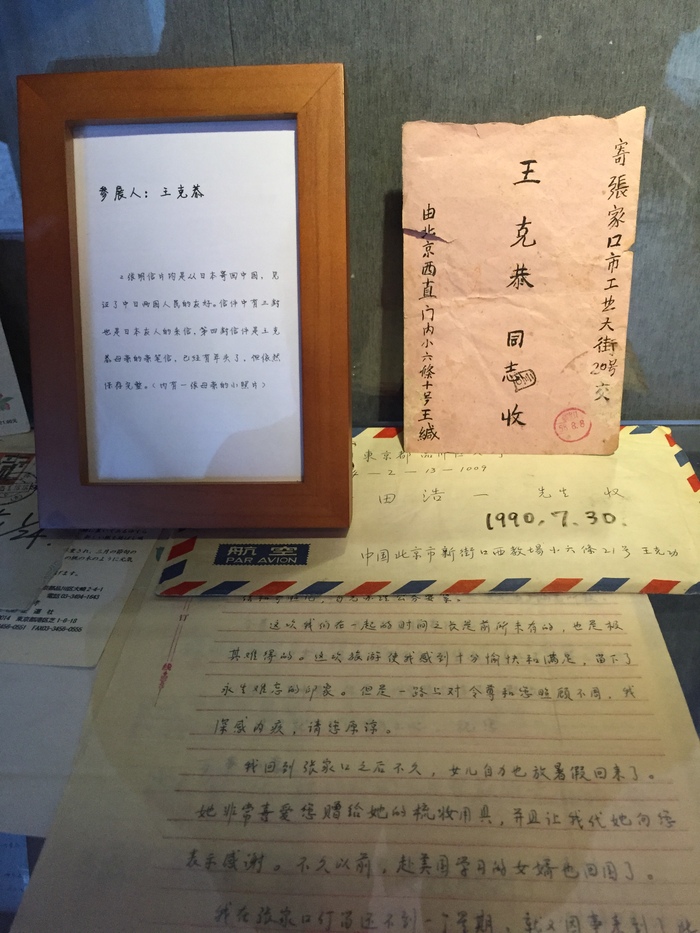 参展人：王克恭
这些明信片均是从日本寄回中国，见
证了中日两国人民的友好。信件中有三封
也是日本友人的来信，第四封信件是王克
恭母亲的亲笔信，已经有年头了，但依然
保存完整。（内有一张母亲的小照片）
寄張家口市工业大街20号交
王克恭同志收
由北京西直门内小六條十号王緘
東京都品川
2-13-1009
田浩一 先生 收
1990.7.30.
航空
PAR AVION
中国北京市新街口西教場小六條21号 王克功
这次我们在一起的时间之长是前所未有的，也是极
其难得的。这次旅游使我感到十分愉快和满足，留下了
永生难忘的印象。但是一路上对令尊和您照顾不周，我
深感内疚，请您原谅。
我回到张家口之后不久，女儿自力也放暑假回来了。
她非常喜爱您赠给她的梳妆用具，并且让我代她向您
表示感谢。不久以前，赴美国学习的女婿也回国了。
我在张家口仃留还不到一个星期，就又因事来到了北